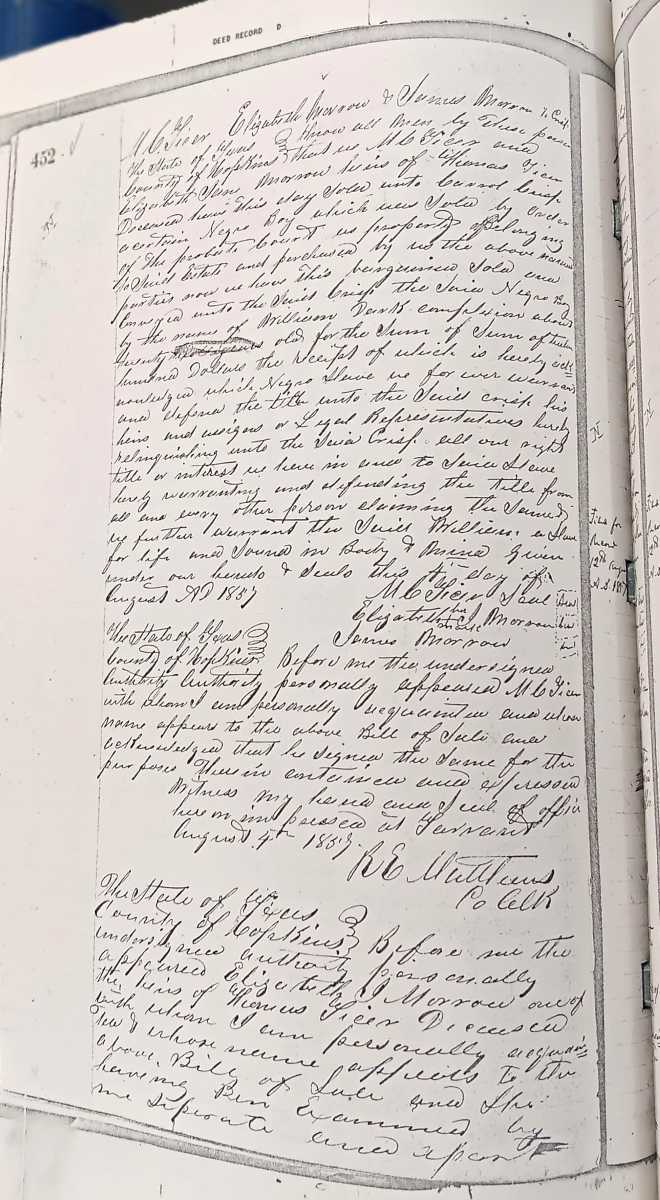 DEED RECORD D
452
M. C. Ticer Elizabeth Morrow & James Morrow To Crisp
The State of Texas
County of Hopkins Know all Men by These presen
that we M C Ticer and
Elizabeth Jane Morrow heirs of Thomas Ticer
Deceased have this day Sold unto Crisp
a certain Negro Boy which was Sold by order
of the probate Court as property Belonging
to Said Estate and purchased by us the above named
parties now we have this bargained Sold and
Conveyed unto the Said Crisp the Said Negro Boy
by the name of William Dark complexion about
twenty old for the Sum of Sum of
hundred Dollars the receipt of which is hereby ack=
nowledged which Negro Slave we for ever warrant
and defend the title unto the Said Crisp his
heirs and assigns or Legal Representatives hereby
relinquishing unto the Said Crisp all our right
title or interest we have in and to Said Slave
hereby warranting and defending the title from
all and every other person claiming the Same
we further warrant the Said William a Slave
for life and Sound in Body & Mind Given
under our hands & Seals this day of
August AD 1857
M C Ticer Seal
Elizabeth her J Morrow
mark
James Morrow
Filed for
Record
12th
A.D. 1857
The State of Texas
County of Hopkins Before me the undersigned
Authority Authority personally appeared M C Ticer
with whom I am personally acquainted and whose
name appears to the above Bill of Sale and
acknowledged that he signed the Same for the
purposes Therein contained and expressed
Witness my hand and Seal of office
hereon impressed at Tarrant
August 4th 1857
R E Matthews
Co Clk
The State of Texas
County of Hopkins Before me the
undersigned authority personally
appeared Elizabeth J Morrow one of
the heirs of Thomas Ticer Deceased
with whom I am personally acquain=
ted & whose name appears to the
above Bill of Sale and She
having Been Examined by
me Seperate and apart